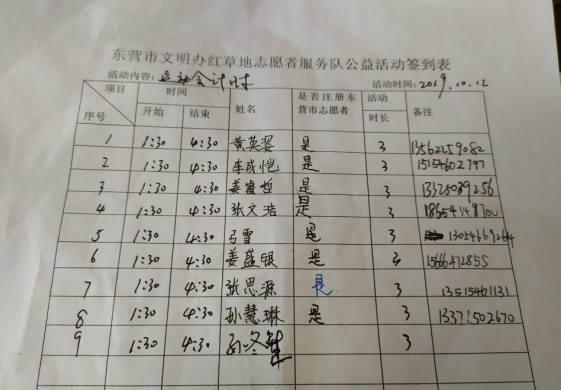 东营市文明办红草地志愿者服务队公益活动签到表
活动内容: 运动会计时 活动时间: 2019.10.12
项目 时间 姓名 是否注册东营市志愿者 活动时长 备注
序号 开始 结束
1 1:30 4:30 黄英翠 是 3 13562259082
2 1:30 4:30 李成恺 是 3 15154602797
3 1:30 4:30 姜睿哲 是 3 13325039256
4 1:30 4:30 张文浩 是 3
5 1:30 4:30 马雪 是 3
6 1:30 4:30 姜盛银 是 3 15666472855
7 1:30 4:30 张思源 是 3 13515461131
8 1:30 4:30 孙慧琳 是 3 13371502670
9 1:30 4:30 3